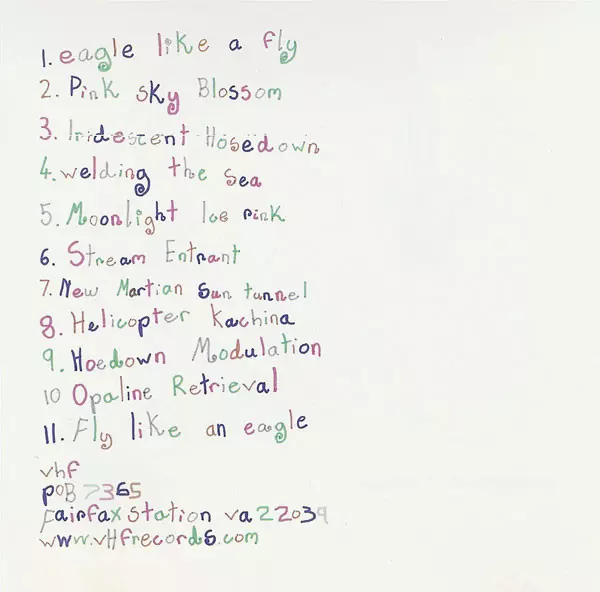 1. eagle like a fly
2. Pink sky Blossom
3. Iridescent Hosedown
4. welding the sea
5. Moonlight Ice pink
6. Stream Entrant
7. New Martian Sun tunnel
8. Helicopter Kachina
9. Hoedown Modulation
10 Opaline Retrieval
11. Fly like an eagle
vhf
poB 7365
Fairfax station va 22039
www.vHfrecords.com